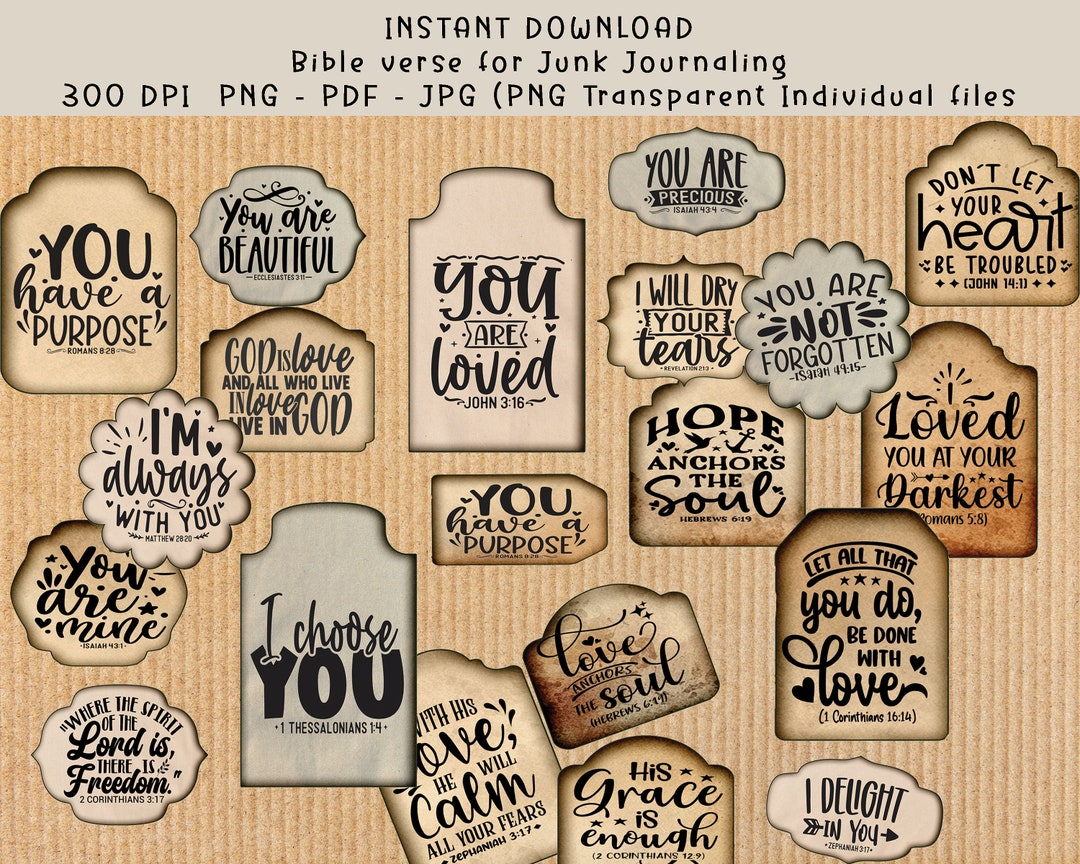 INSTANT DOWNLOAD
Bible verse for Junk Journaling
300 DPI PNG - PDF - JPG (PNG Transparent Individual files
YOU
have a
"PURPOSE"
ROMANS 8:28
You are
BEAUTIFUL
ECCLESIASTES 3:11
GOD IS love
AND ALL WHO LIVE
IN love
LIVE IN GOD
I'M
always
WITH YOU
MATTHEW 28:20
You
are
mine
ISAIAH 43:1
"WHERE THE SPIRIT
OF THE
Lord is,
THERE IS
Freedom."
2 CORINTHIANS 3:17
you
ARE
loved
JOHN 3:16
YOU
have a
PURPOSE
ROMANS 8:28
I choose
YOU
1 THESSALONIANS 1:4
WITH HIS
LOVE,
HE WILL
CALM
ALL YOUR FEARS
ZEPHANIAH 3:17
YOU ARE
PRECIOUS
ISAIAH 43:4
I WILL DRY
YOUR
tears
REVELATION 21:3
YOU ARE
NOT
FORGOTTEN
-ISAIAH 49:15-
DON'T LET
YOUR
heart
BE TROUBLED
(JOHN 14:1)
HOPE
ANCHORS
THE
Soul
HEBREWS 6:19
I
Loved
YOU AT YOUR
Darkest
(Romans 5:8)
love
ANCHORS
THE soul
(HEBREWS 6:19)
LET ALL THAT
you do,
BE DONE
WITH
love
(1 Corinthians 16:14)
His
Grace
is
enough
(2 CORINTHIANS 12:9)
I DELIGHT
IN YOU
ZEPHANIAH 3:17